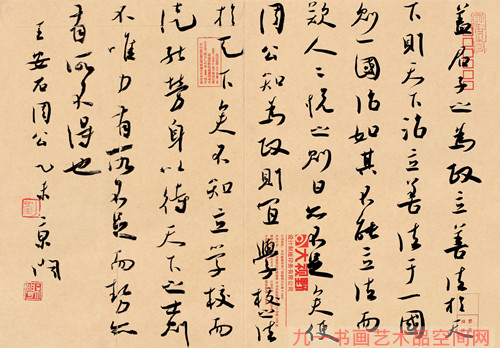 蓋君子之為政立善法於天
下則天下治立善法于一國
則一國治如其不能立法而
欲人々悦之則日亦不足矣使
周公知為政則宜學校之法
於天下矣不知立学校而
徒能勞身以待天下之士則
不唯力有所不足而勢亦
有所不得也
王安石周公乙未
大視野
九一书画艺术品空间网